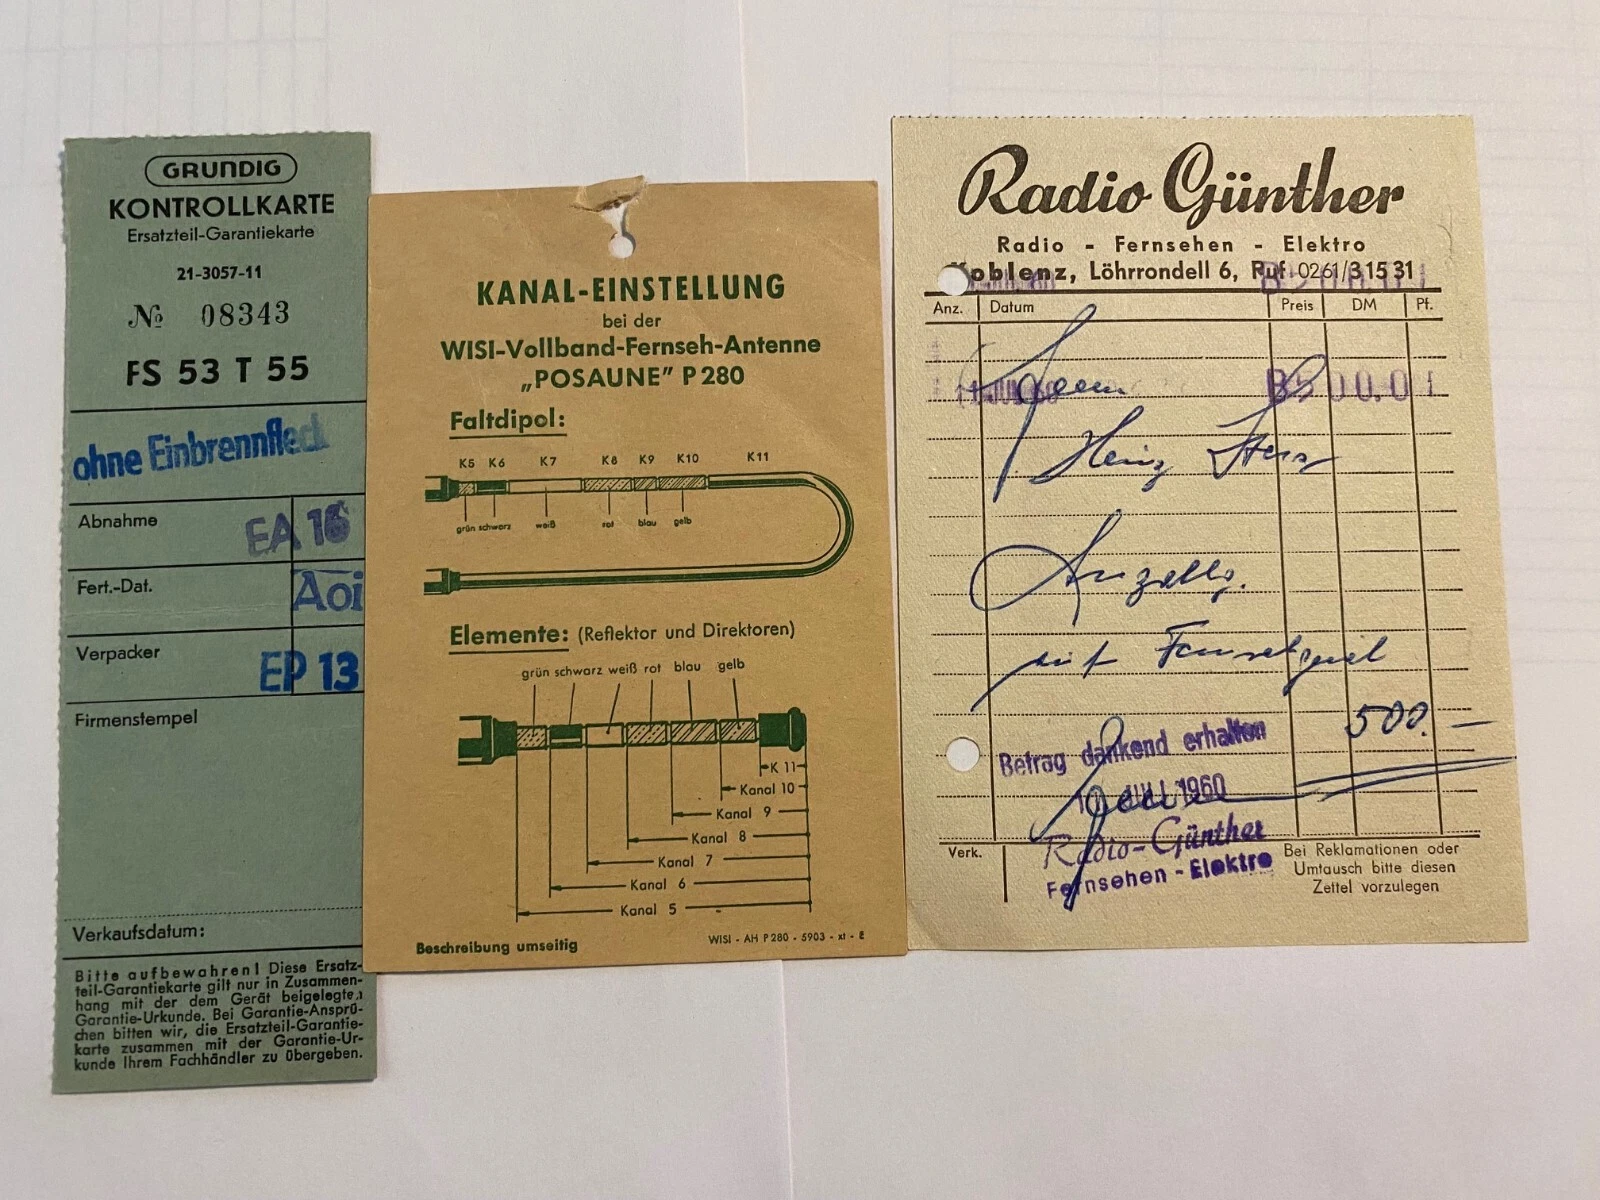 GRUNDIG
KONTROLLKARTE
Ersatzteil-Garantiekarte
21-3057-11
№ 08343
FS 53 T 55
ohne Einbrennfleck
Abnahme EA 16
Fert.-Dat. Aoi
Verpacker EP 13
Firmenstempel
Verkaufsdatum:
Bitte aufbewahren! Diese Ersatz-
teil-Garantiekarte gilt nur in Zusammen-
hang mit der dem Gerät beigelegten
Garantie-Urkunde. Bei Garantie-Ansprü-
chen bitten wir, die Ersatzteil-Garantie-
karte zusammen mit der Garantie-Ur-
kunde Ihrem Fachhändler zu übergeben.
KANAL-EINSTELLUNG
bei der
WISI-Vollband-Fernseh-Antenne
„POSAUNE” P 280
Faltdipol:
K5 K6 K7 K8 K9 K10 K11
grün schwarz weiß rot blau gelb
Elemente: (Reflektor und Direktoren)
grün schwarz weiß rot blau gelb
K 11
Kanal 10
Kanal 9
Kanal 8
Kanal 7
Kanal 6
Kanal 5
Beschreibung umseitig
WISI - AH P 280 - 5903 - xt - E
Radio Günther
Radio - Fernsehen - Elektro
Koblenz, Löhrrondell 6, Ruf 0261/31531
Anz. Datum Preis DM Pf.
Heinz
Anzahlg.
mit Fernsehgerät
500.—
Betrag dankend erhalten
JULI 1960
Radio-Günther
Fernsehen - Elektro
Verk.
Bei Reklamationen oder
Umtausch bitte diesen
Zettel vorzulegen